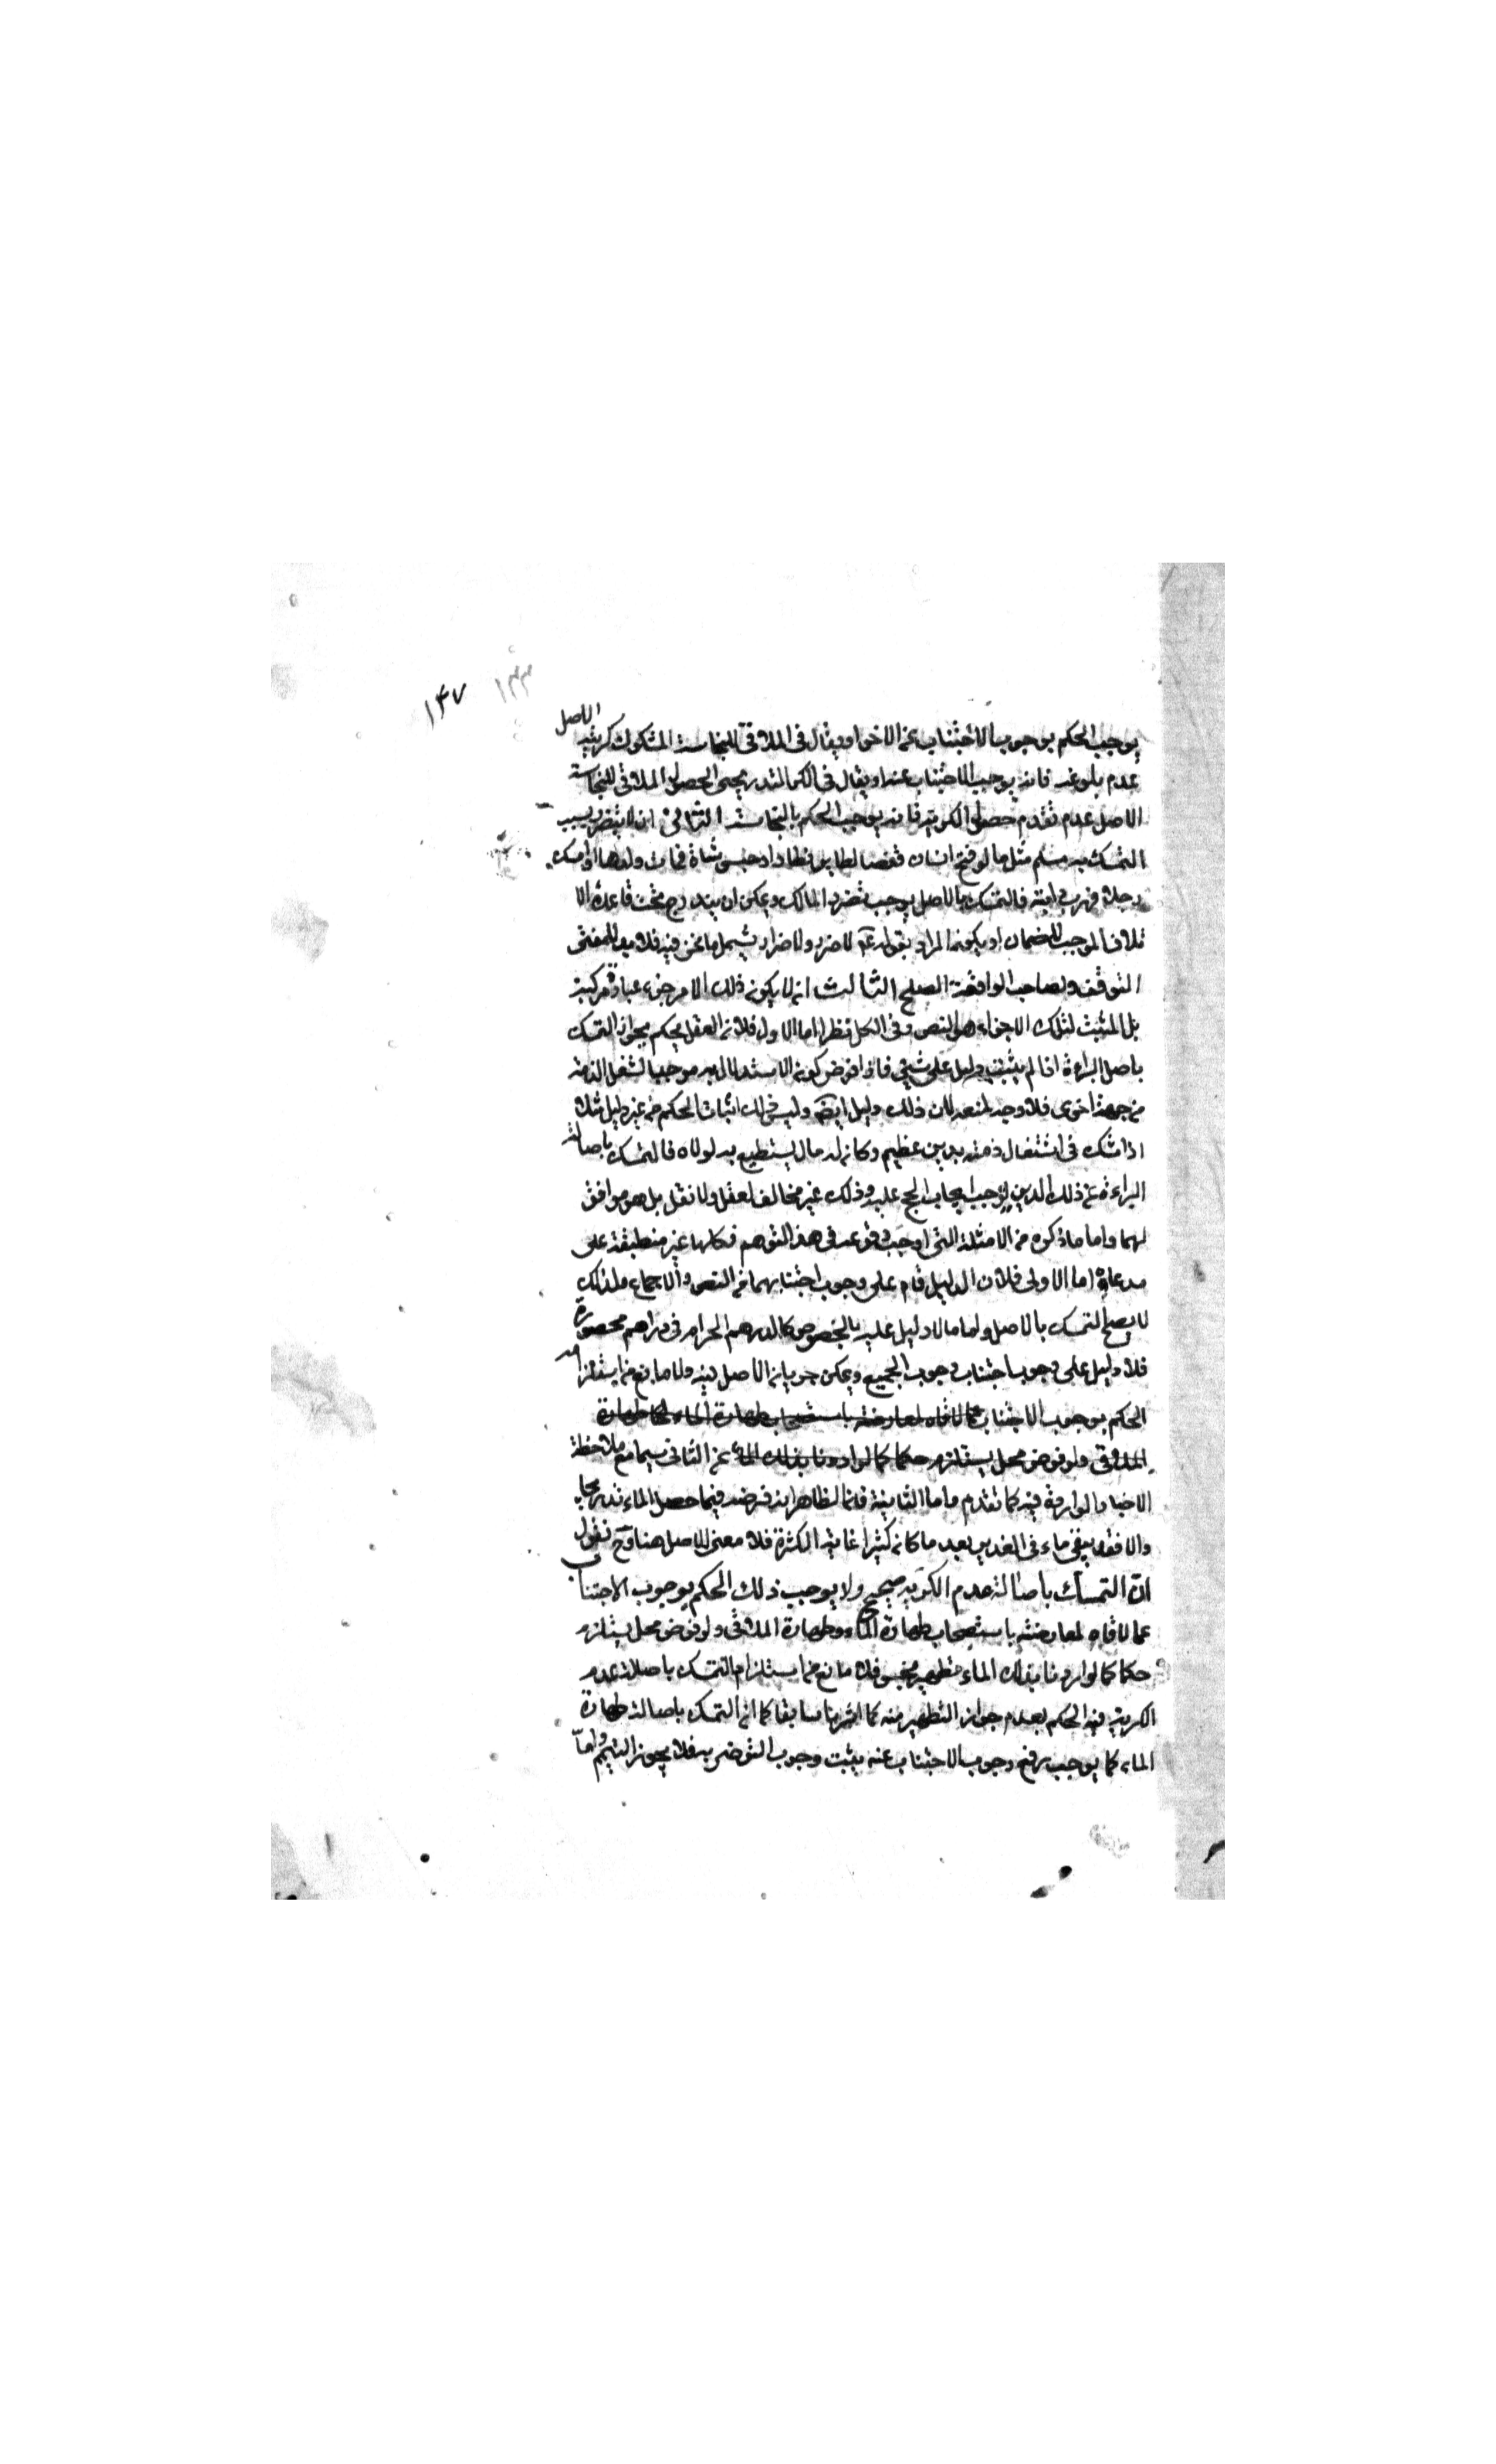 ١٣٣ ١٤٧
يوجب الحكم بوجوب الاجتناب عن الاخر او ويقال فى الملاقى للنجاسة المشكوك كريته الاصل
عدم بلوغه فانه يوجب الاجتناب عنه او يقال فى الكر التدريجى الحصول الملاقى للنجاسة
الاصل عدم تقدم حصول الكرية فانه يوجب الحكم بالنجاسة الثانى ان لا يتضرر بسبب
التمسك به مسلم مثل ما لو فتح انسان قفصا لطاير فطار او حبس شاة فمات ولدها او امسك
رجلا فهرب دابته فالتمسك بالاصل يوجب تضرر المالك ويمكن ان يندرج تحت قاعدة الا
تلاف الموجب للضمان او يكون المراد بقوله لا ضرر ولا ضرار يشمل ما نحن فيه فلا بد للمفتى
التوقف ولصاحب الواقعة الصلح الثالث ان لا يكون ذلك الامر جزء عبادة مركبة
بل المثبت لتلك الاجزاء هو النص وفى الكل نظر اما الاول فلان العقل يحكم بجواز التمسك
باصل البراءة اذا لم يثبت دليل على شىء فاذا فرض كون الاستدلال به موجبا لشغل الذمة
من جهة اخرى فلا وجه لمنعه لان ذلك دليل ايضا وليس ذلك اثبات الحكم من غير دليل مثلا
اذا شك فى اشتغال ذمته بدين عظيم وكان له مال يستطيع به لولاه فالتمسك باصالة
البراءة عن ذلك الدين يوجب ايجاب الحج عليه وذلك غير مخالف لعقل ولا نقل بل هو موافق
لهما واما ما ذكره من الامثلة التى اوجبت وقوعه فى هذا التوهم فكلها غير منطبقة على
مدعاه اما الاولى فلان الدليل قام على وجوب اجتنابهما من النص والاجماع ولذلك
لا يصح التمسك بالاصل واما ما لا دليل عليه بالخصوص كالدرهم الحرام فى دراهم محصورة
فلا دليل على وجوب اجتناب وجوب الجميع ويمكن جريان الاصل فيه ولا مانع من استلزامه
الحكم بوجوب الاجتناب عما لاقاه لمعارضته باستصحاب طهارة الماء وطهارة
الملاقى ولو فرض محل يستلزم حكما كما لو اردنا بذلك الماء عن الثانى سيما مع ملاحظة
الاخبار الواردة فيه كما تقدم واما الثانية فانما الظاهر انه فرضه فيما حصل الماء تدريجا
والا فقد يبقى ماء فى الغدير بعد ما كان كثيرا غاية الكثرة فلا معنى للاصل هنا وح نقول
ان التمسك باصالة عدم الكرية صحيح ولا يوجب ذلك الحكم بوجوب الاجتناب
عما لاقاه لمعارضته باستصحاب طهارة الماء وطهارة الملاقى ولو فرض محل يستلزم
حكما كما لو اردنا بذلك الماء تطهير نجس فلا مانع من استلزام التمسك باصالة عدم
الكرية فيه الحكم بعدم جواز التطهير منه كما اشرنا سابقا كما ان التمسك باصالة طهارة
الماء كما يوجب رفع وجوب الاجتناب عنه يثبت وجوب التوضى به فلا يجوز التيمم واما